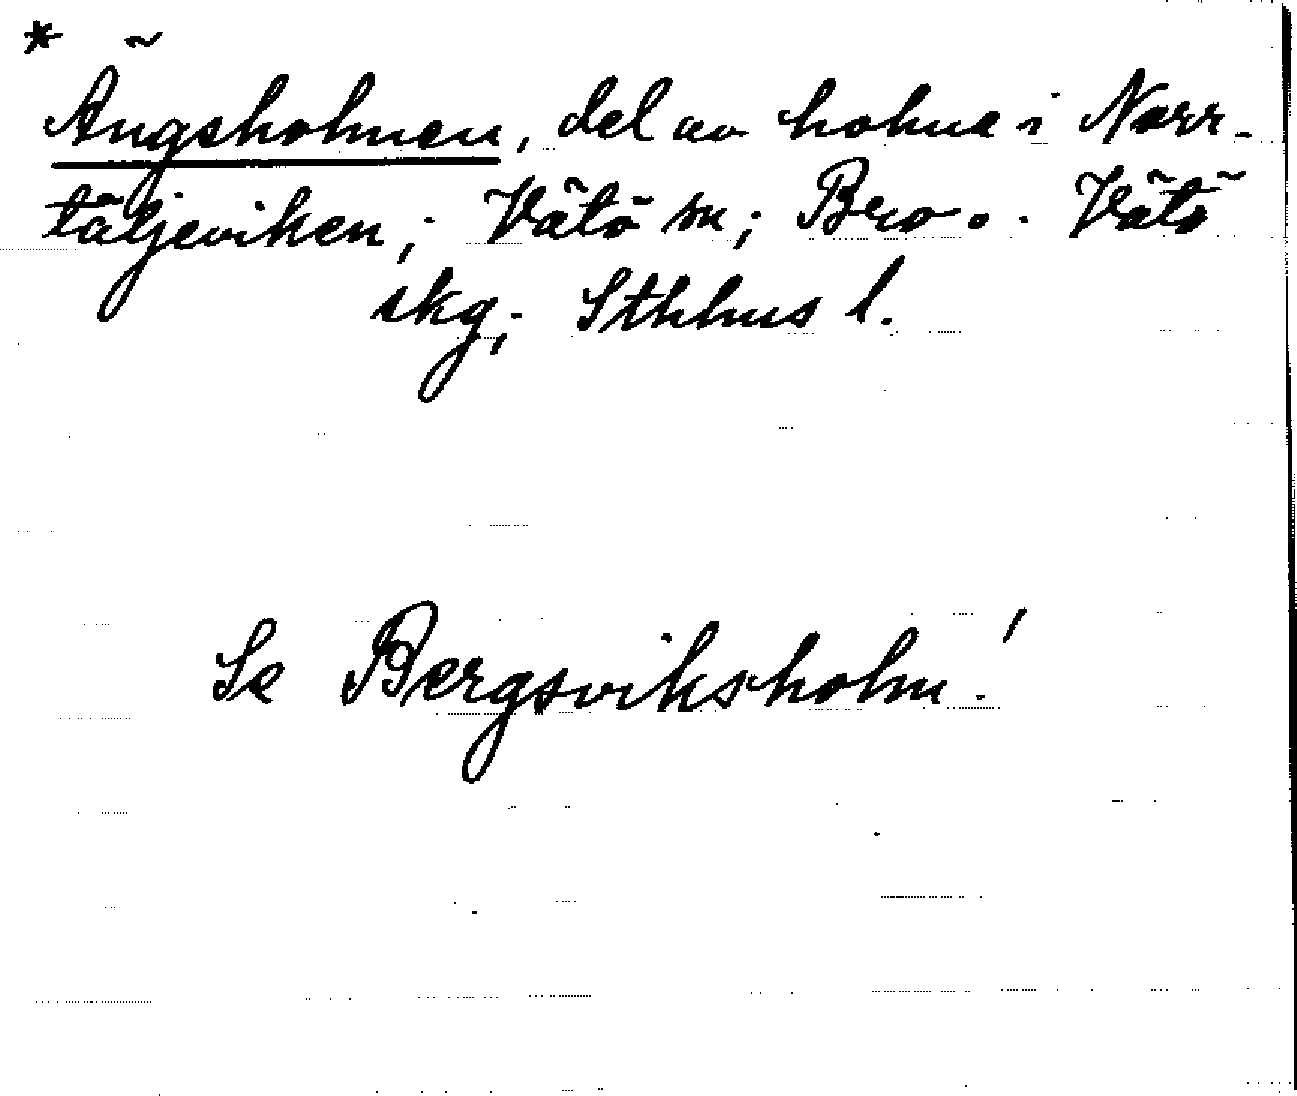 * Ängsholmen, del av holme i Norr-
täljeviken; Vätö sn; Bro o. Vätö
skg; Sthlms l.
Se Bergsviksholm!